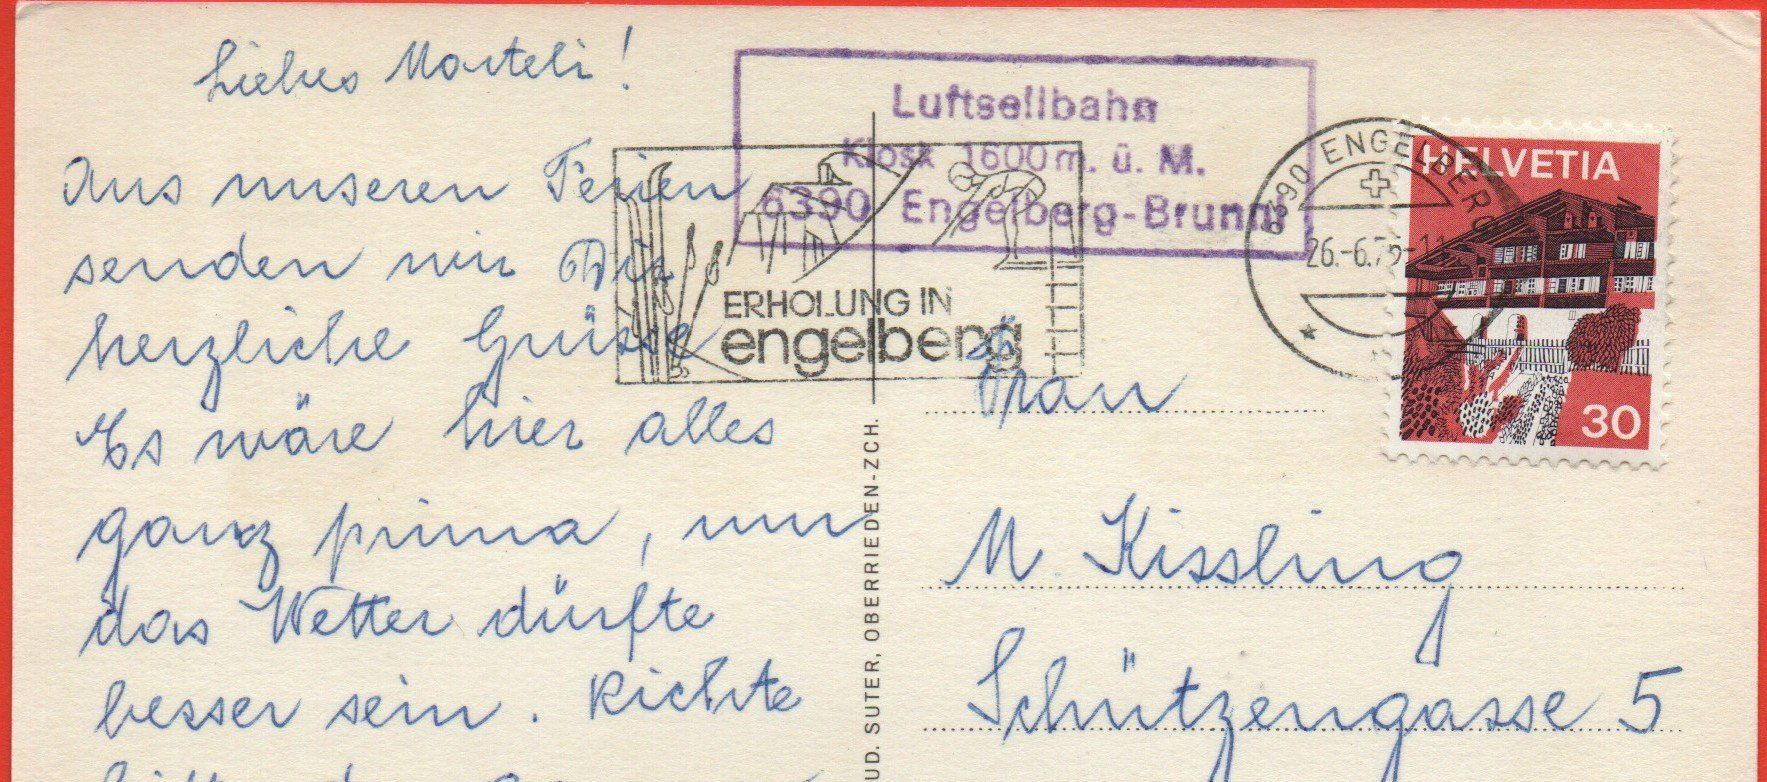 Liebes Marteli!
Aus unseren Ferien
senden wir Dir
herzliche Grüsse
Es wäre hier alles
ganz prima, nur
das Wetter dürfte
besser sein. Richte
Luftsellbahn
Kiosk 1600 m. ü. M.
6390 Engelberg-Brunni
ERHOLUNG IN
engelberg
6390 ENGELBERG
HELVETIA
30
UD. SUTER, OBERRIEDEN-ZCH.
Frau
M. Kissling
Schützengasse 5